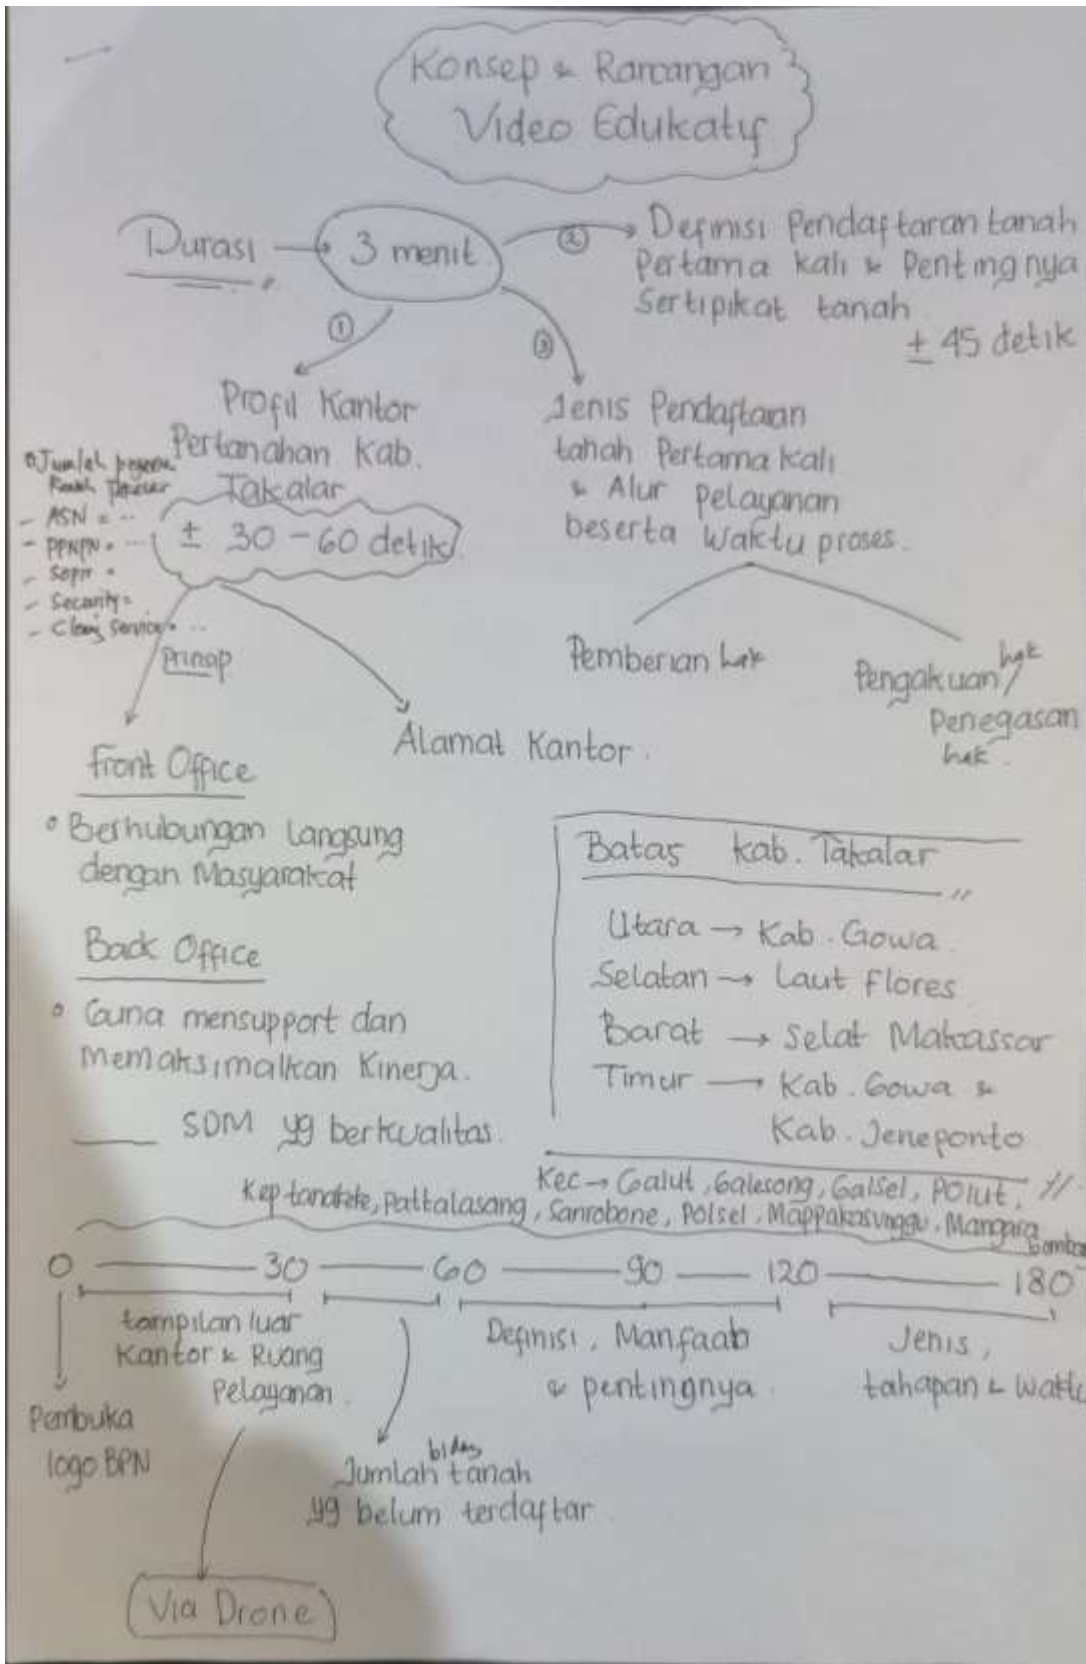 Konsep & Rancangan
Video Edukatif
Durasi → 3 menit
② Definisi Pendaftaran tanah
Pertama kali & Pentingnya
Sertipikat tanah
± 45 detik
①
Profil Kantor
Pertanahan Kab.
Takalar
± 30 - 60 detik
• Jumlah
- ASN = ..
- PPNPN = ...
- Security =
- service = ..
③
Jenis Pendaftaran
tanah Pertama Kali
& Alur pelayanan
beserta Waktu proses.
Pemberian hak
Pengakuan hak/
Penegasan
hak.
Alamat Kantor.
Front Office
• Berhubungan Langsung
dengan Masyarakat
Back Office
• Guna mensupport dan
Memaksimalkan Kinerja.
SDM yg berkualitas.
Batas Kab. Takalar
Utara → Kab. Gowa.
Selatan → Laut Flores
Barat → Selat Makassar
Timur → Kab. Gowa &
Kab. Jeneponto
Kec → Galut, Galesong, Galsel, Polut,
Kep tanakeke, Pattalasang, Sanrobone, Polsel, Mappakasunggu, Mangara
bombang
0 30 60 90 120 180
tampilan luar
Kantor & Ruang
Pelayanan.
Definisi, Manfaat
& pentingnya.
Jenis,
tahapan & waktu
Pembuka
logo BPN
Jumlah bidang tanah
yg belum terdaftar.
Via Drone